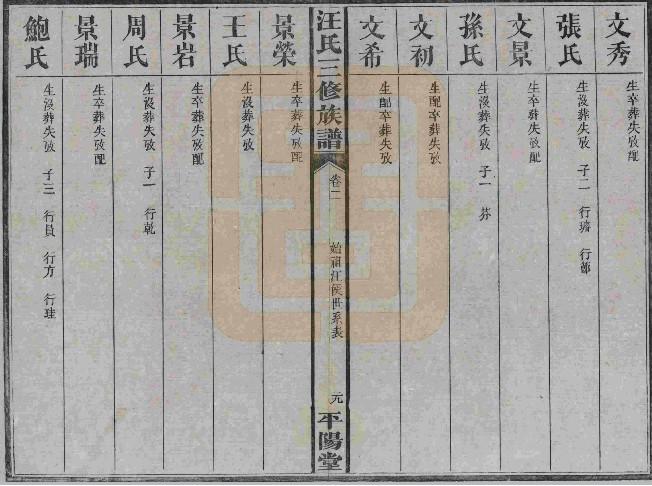 文秀
生卒葬失攷配
張氏
生沒葬失攷 子二 行瓊 行
文景
生卒葬失攷配
孫氏
生沒葬失攷 子一 芬
文初
生配卒葬失攷
文希
生配卒葬失攷
汪氏三修族譜
卷二
始祖汪侯世系表
元
平陽堂
景榮
生卒葬失攷配
王氏
生沒葬失攷
景岩
生卒葬失攷配
周氏
生沒葬失攷 子一 行乾
景瑞
生卒葬失攷配
鮑氏
生沒葬失攷 子三 行員 行方 行珪